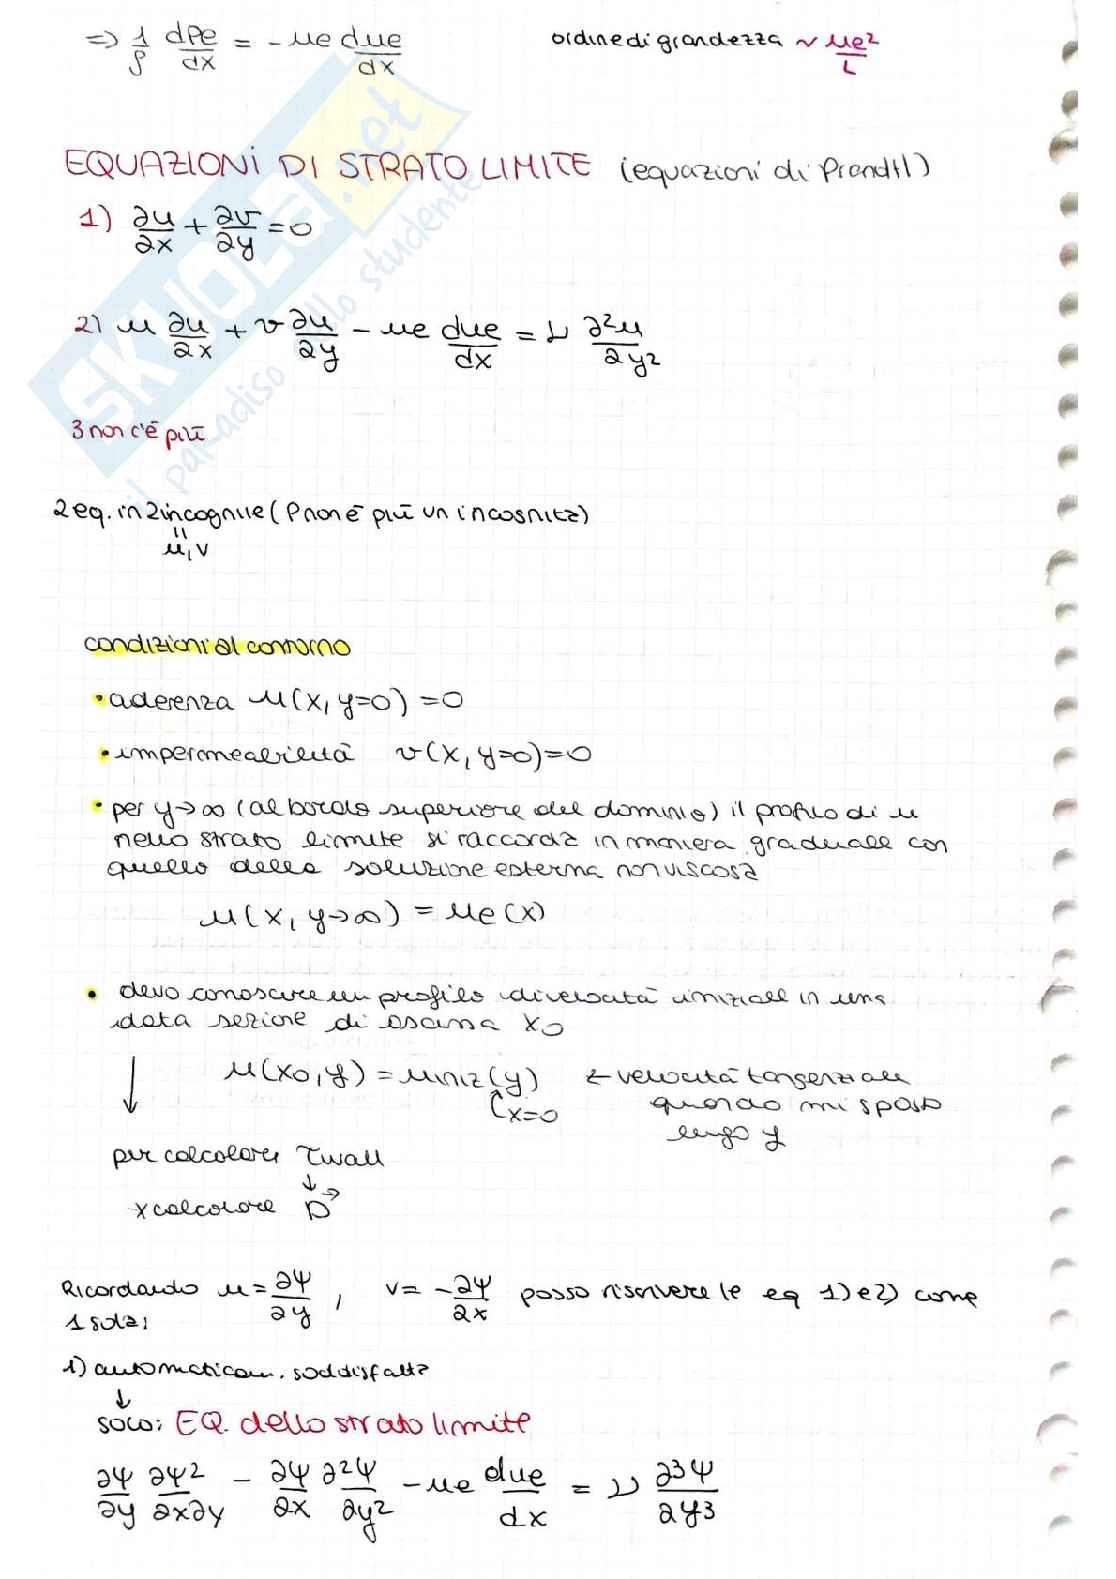 => 1/ρ dPe/dx = - ue due/dx   ordine di grandezza ~ ue²/L
EQUAZIONI DI STRATO LIMITE (equazioni di Prandtl)
1) ∂u/∂x + ∂v/∂y = 0
2) u ∂u/∂x + v ∂u/∂y - ue due/dx = ν ∂²u/∂y²
3 non c'è più
2 eq. in 2 incognite (P non è più un incognita)
=
u, v
condizioni al contorno
• aderenza u(x, y=0) = 0
• impermeabilità v(x, y=0) = 0
• per y→∞ (al bordo superiore del dominio) il profilo di u
nello strato limite si raccorda in maniera graduale con
quello della soluzione esterna non viscosa
u(x, y→∞) = ue(x)
• devo conoscere un profilo di velocità iniziale in una
data sezione di ascissa x0
↓ u(x0, y) = uiniz(y) ← velocità tangenziale
x=0 quando mi sposto
lungo y
per calcolare τwall
↓
x calcolare D→
Ricordando u = ∂ψ/∂y , v = -∂ψ/∂x posso riscrivere le eq 1) e 2) come
1 sola:
1) automaticam. soddisfatta
↓
solo: EQ. dello strato limite
∂ψ/∂y ∂ψ²/∂x∂y - ∂ψ/∂x ∂²ψ/∂y² - ue due/dx = ν ∂³ψ/∂y³
SKUOLA.net
il paradiso dello studente